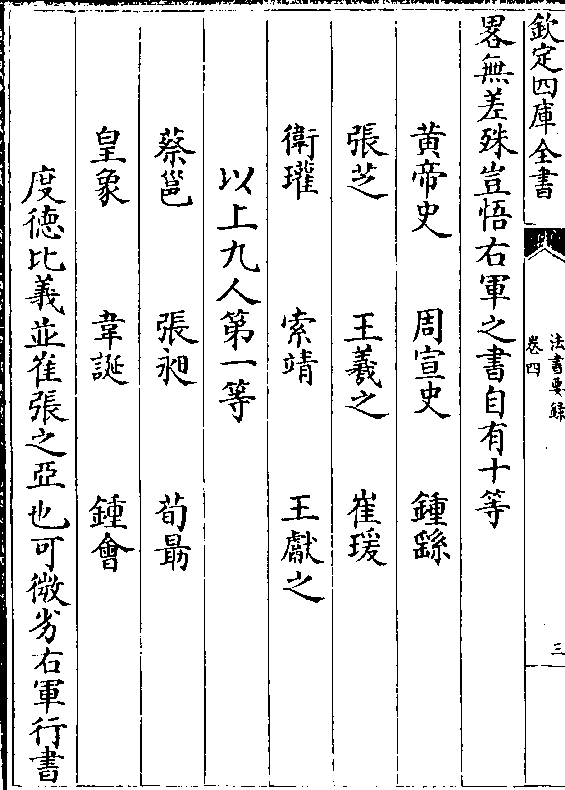 欽定四庫全書
法書要錄
卷四
三
畧無差殊豈悟右軍之書自有十等
黄帝史 周宣史 鍾繇
張芝 王羲之 崔瑗
衛瓘 索靖 王獻之
以上九人第一等
蔡邕 張昶 荀勗
皇象 韋誕 鍾會
度德比義並崔張之亞也可微劣右軍行書